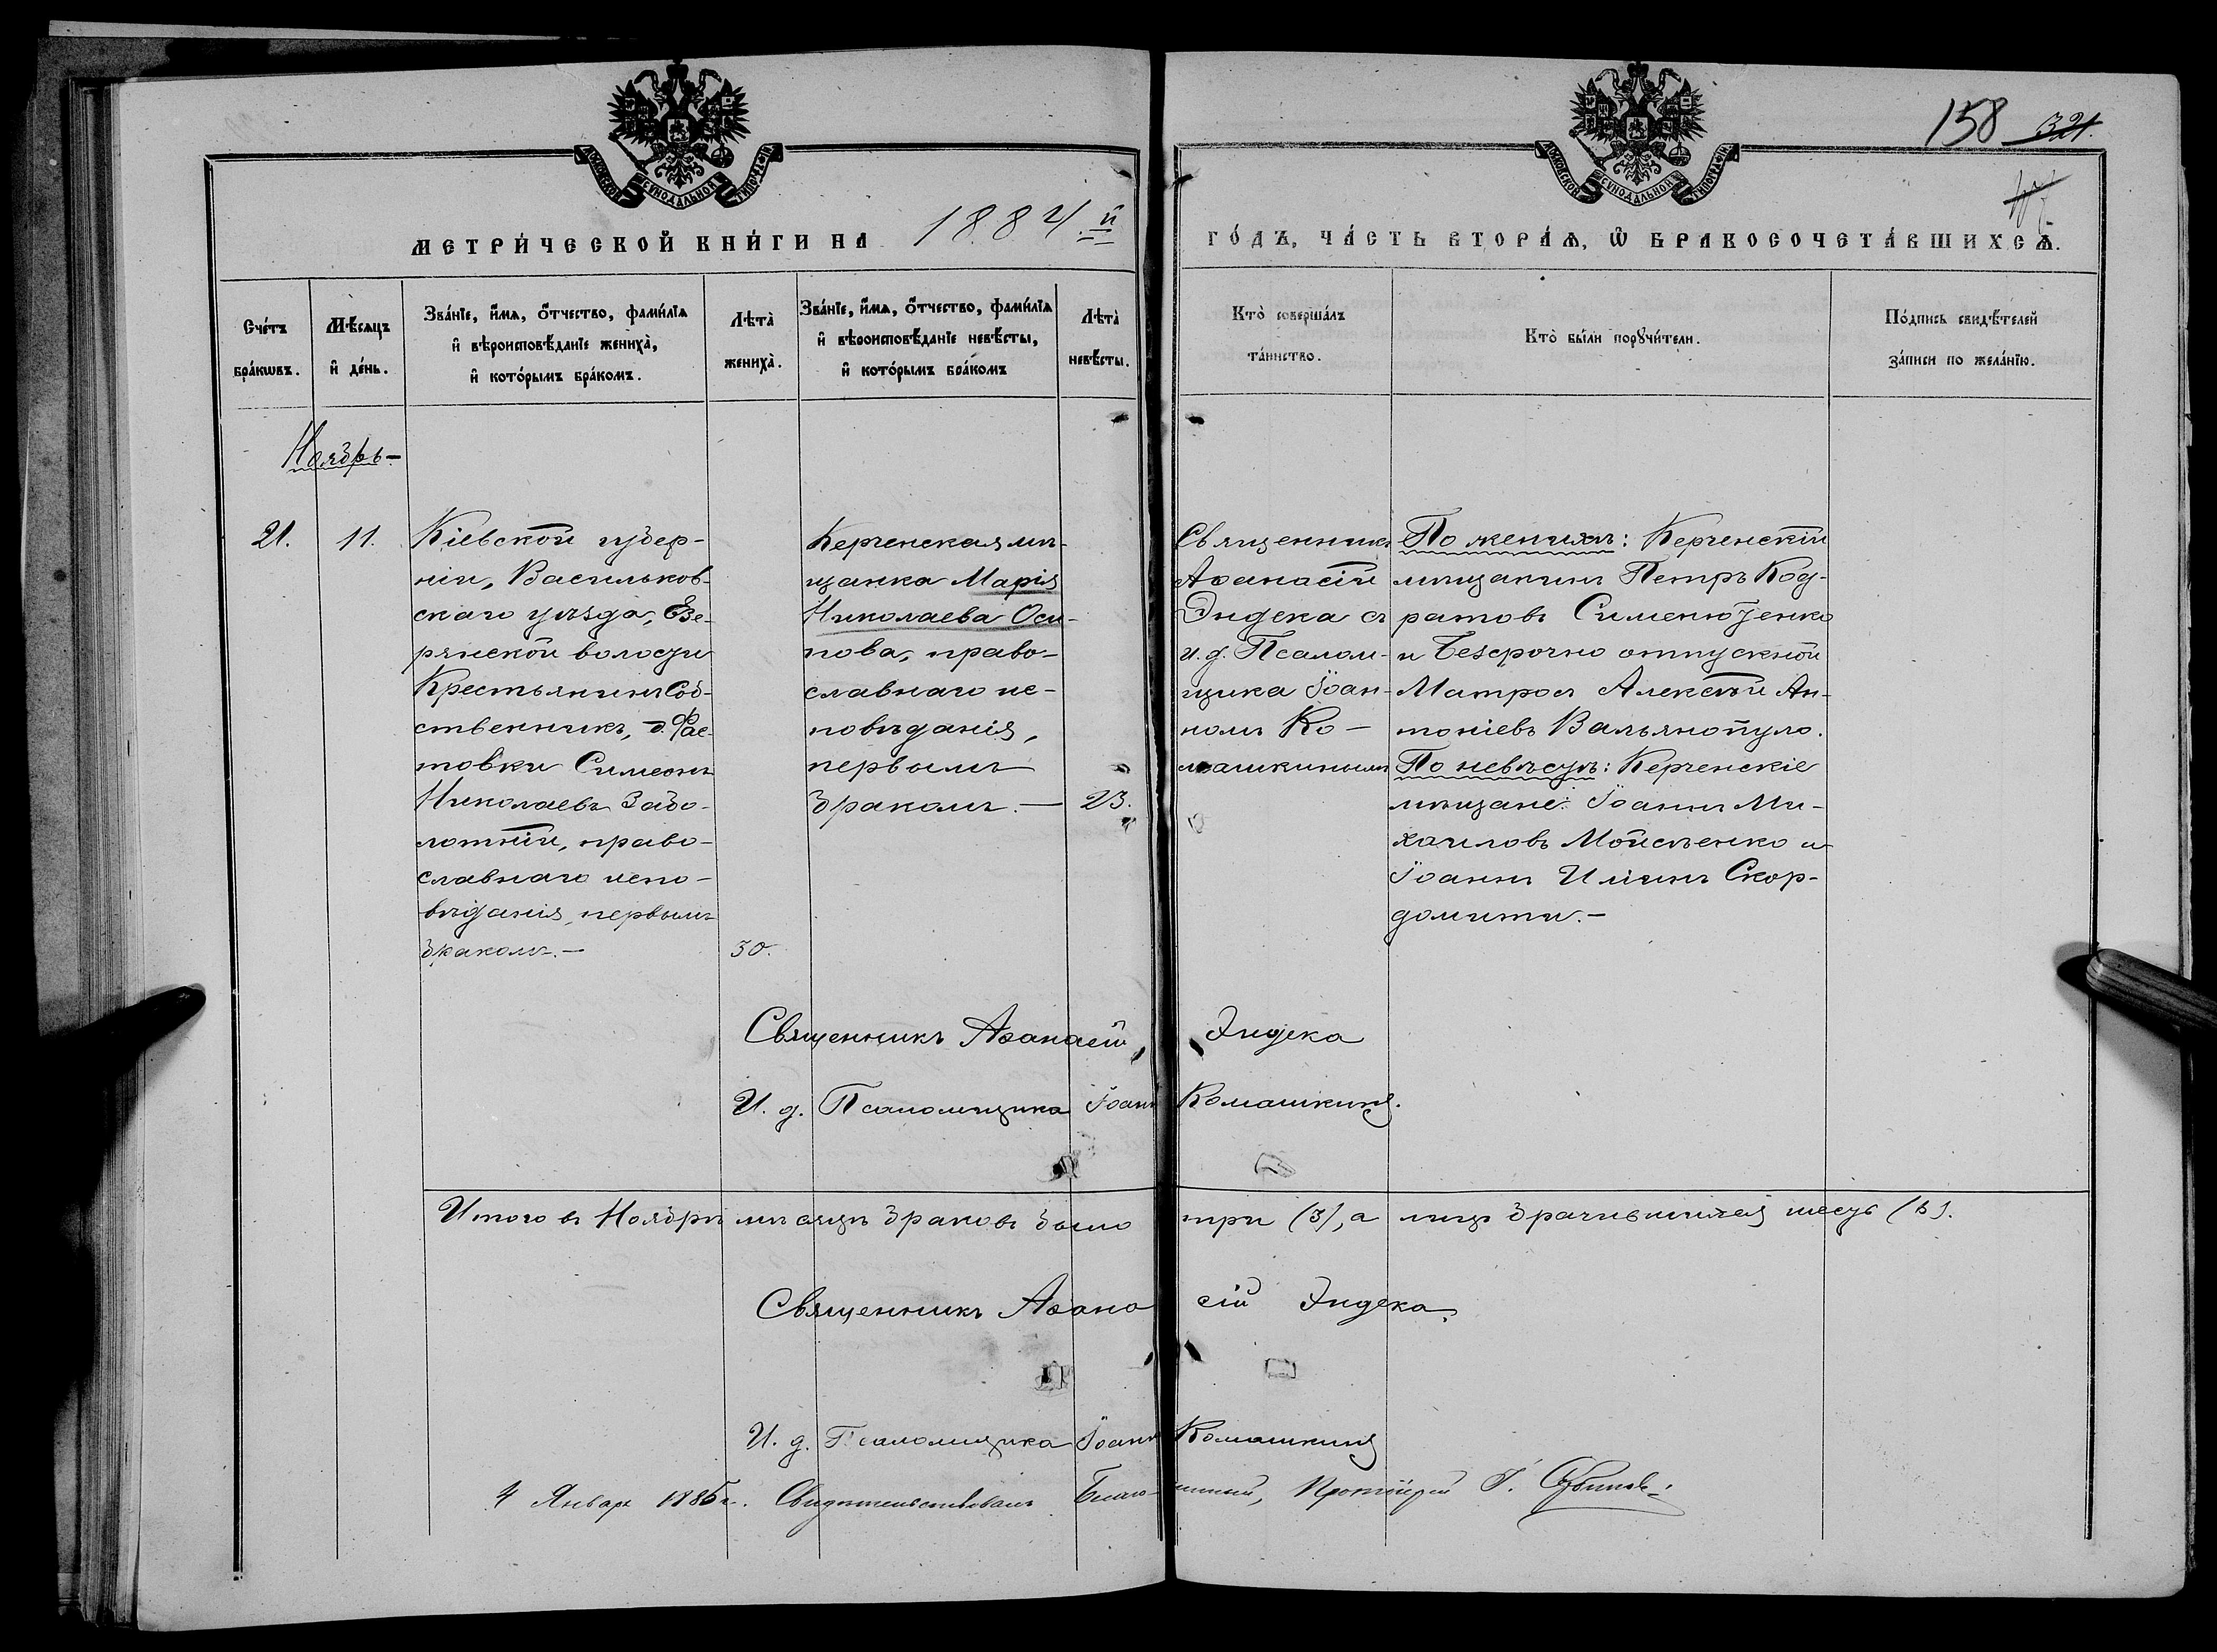 МОСКОВСКОЙ СѴНОДАЛЬНОЙ ТИПОГРАФІИ
МОСКОВСКОЙ СѴНОДАЛЬНОЙ ТИПОГРАФІИ
158 321.
МЕТРИ́ЧЕСКОЙ КНИ́ГИ НА 1884.й
ГО́ДЪ, ЧА́СТЬ ВТОРА́Ѧ, Ѽ БРАКОСОЧЕТА́ВШИХСѦ.
Сче́тъ бра́кѡвъ.
Мѣ́сяцъ и҆ де́нь.
Зва́нїе, и҆́мѧ, ѻ҆́тчество, фами́лїѧ
и҆ вѣроисповѣ́данїе жениха̀,
и҆ кото́рымъ бра́комъ.
Лѣта̀ жениха̀.
Зва́нїе, и҆́мѧ, ѻ҆́тчество, фами́лїѧ
и҆ вѣроисповѣ́данїе невѣ́сты,
и҆ кото́рымъ бра́комъ
Лѣта̀ невѣ́сты.
Кто̀ соверша́лъ
та́инство.
Кто̀ бы́ли порꙋчи́тели.
По́дпись свидѣ́телей
за́писи по жела́нїю.
Ноябрь-
21.
11.
Кіевской губер-
ніи, Васильков-
скаго уѣзда, Езе-
рянской волости
Крестьянинъ Соб-
ственникъ, д. Фас-
товки Симеонъ
Николаевъ Забо-
лотній, право-
славнаго испо-
вѣданія, первымъ
бракомъ.-
30.
Керченская мѣ-
щанка Марія
Николаева Оси-
пова, право-
славнаго ис-
повѣданія,
первымъ
бракомъ.-
23.
Священникъ
Аѳанасій
Эндека съ
и. д. Псалом-
щика Іоан-
номъ Ко-
машкинымъ
По женихѣ: Керченскій
мѣщанинъ Петръ Код-
ратовъ Сименютенко
и безсрочно отпускной
Матросъ Алексѣй Ан-
тоніевъ Вальянопуло.
По невѣстѣ: Керченскіе
мѣщане: Іоаннъ Ми-
хаиловъ Мойсѣенко и
Іоаннъ Ильинъ Скор-
домити.-
Священникъ Аѳанасій Эндека
И. д. Псаломщика Іоаннъ Комашкинъ.
Итого въ Ноябрѣ мѣсяцѣ браковъ было три (3), а лицъ брачившихся шесть (6).
Священникъ Аѳанасій Эндека.
И. д. Псаломщика Іоаннъ Комашкинъ
4 Января 1885 г. Свидѣтельствовалъ Благочинный, Протоіерей